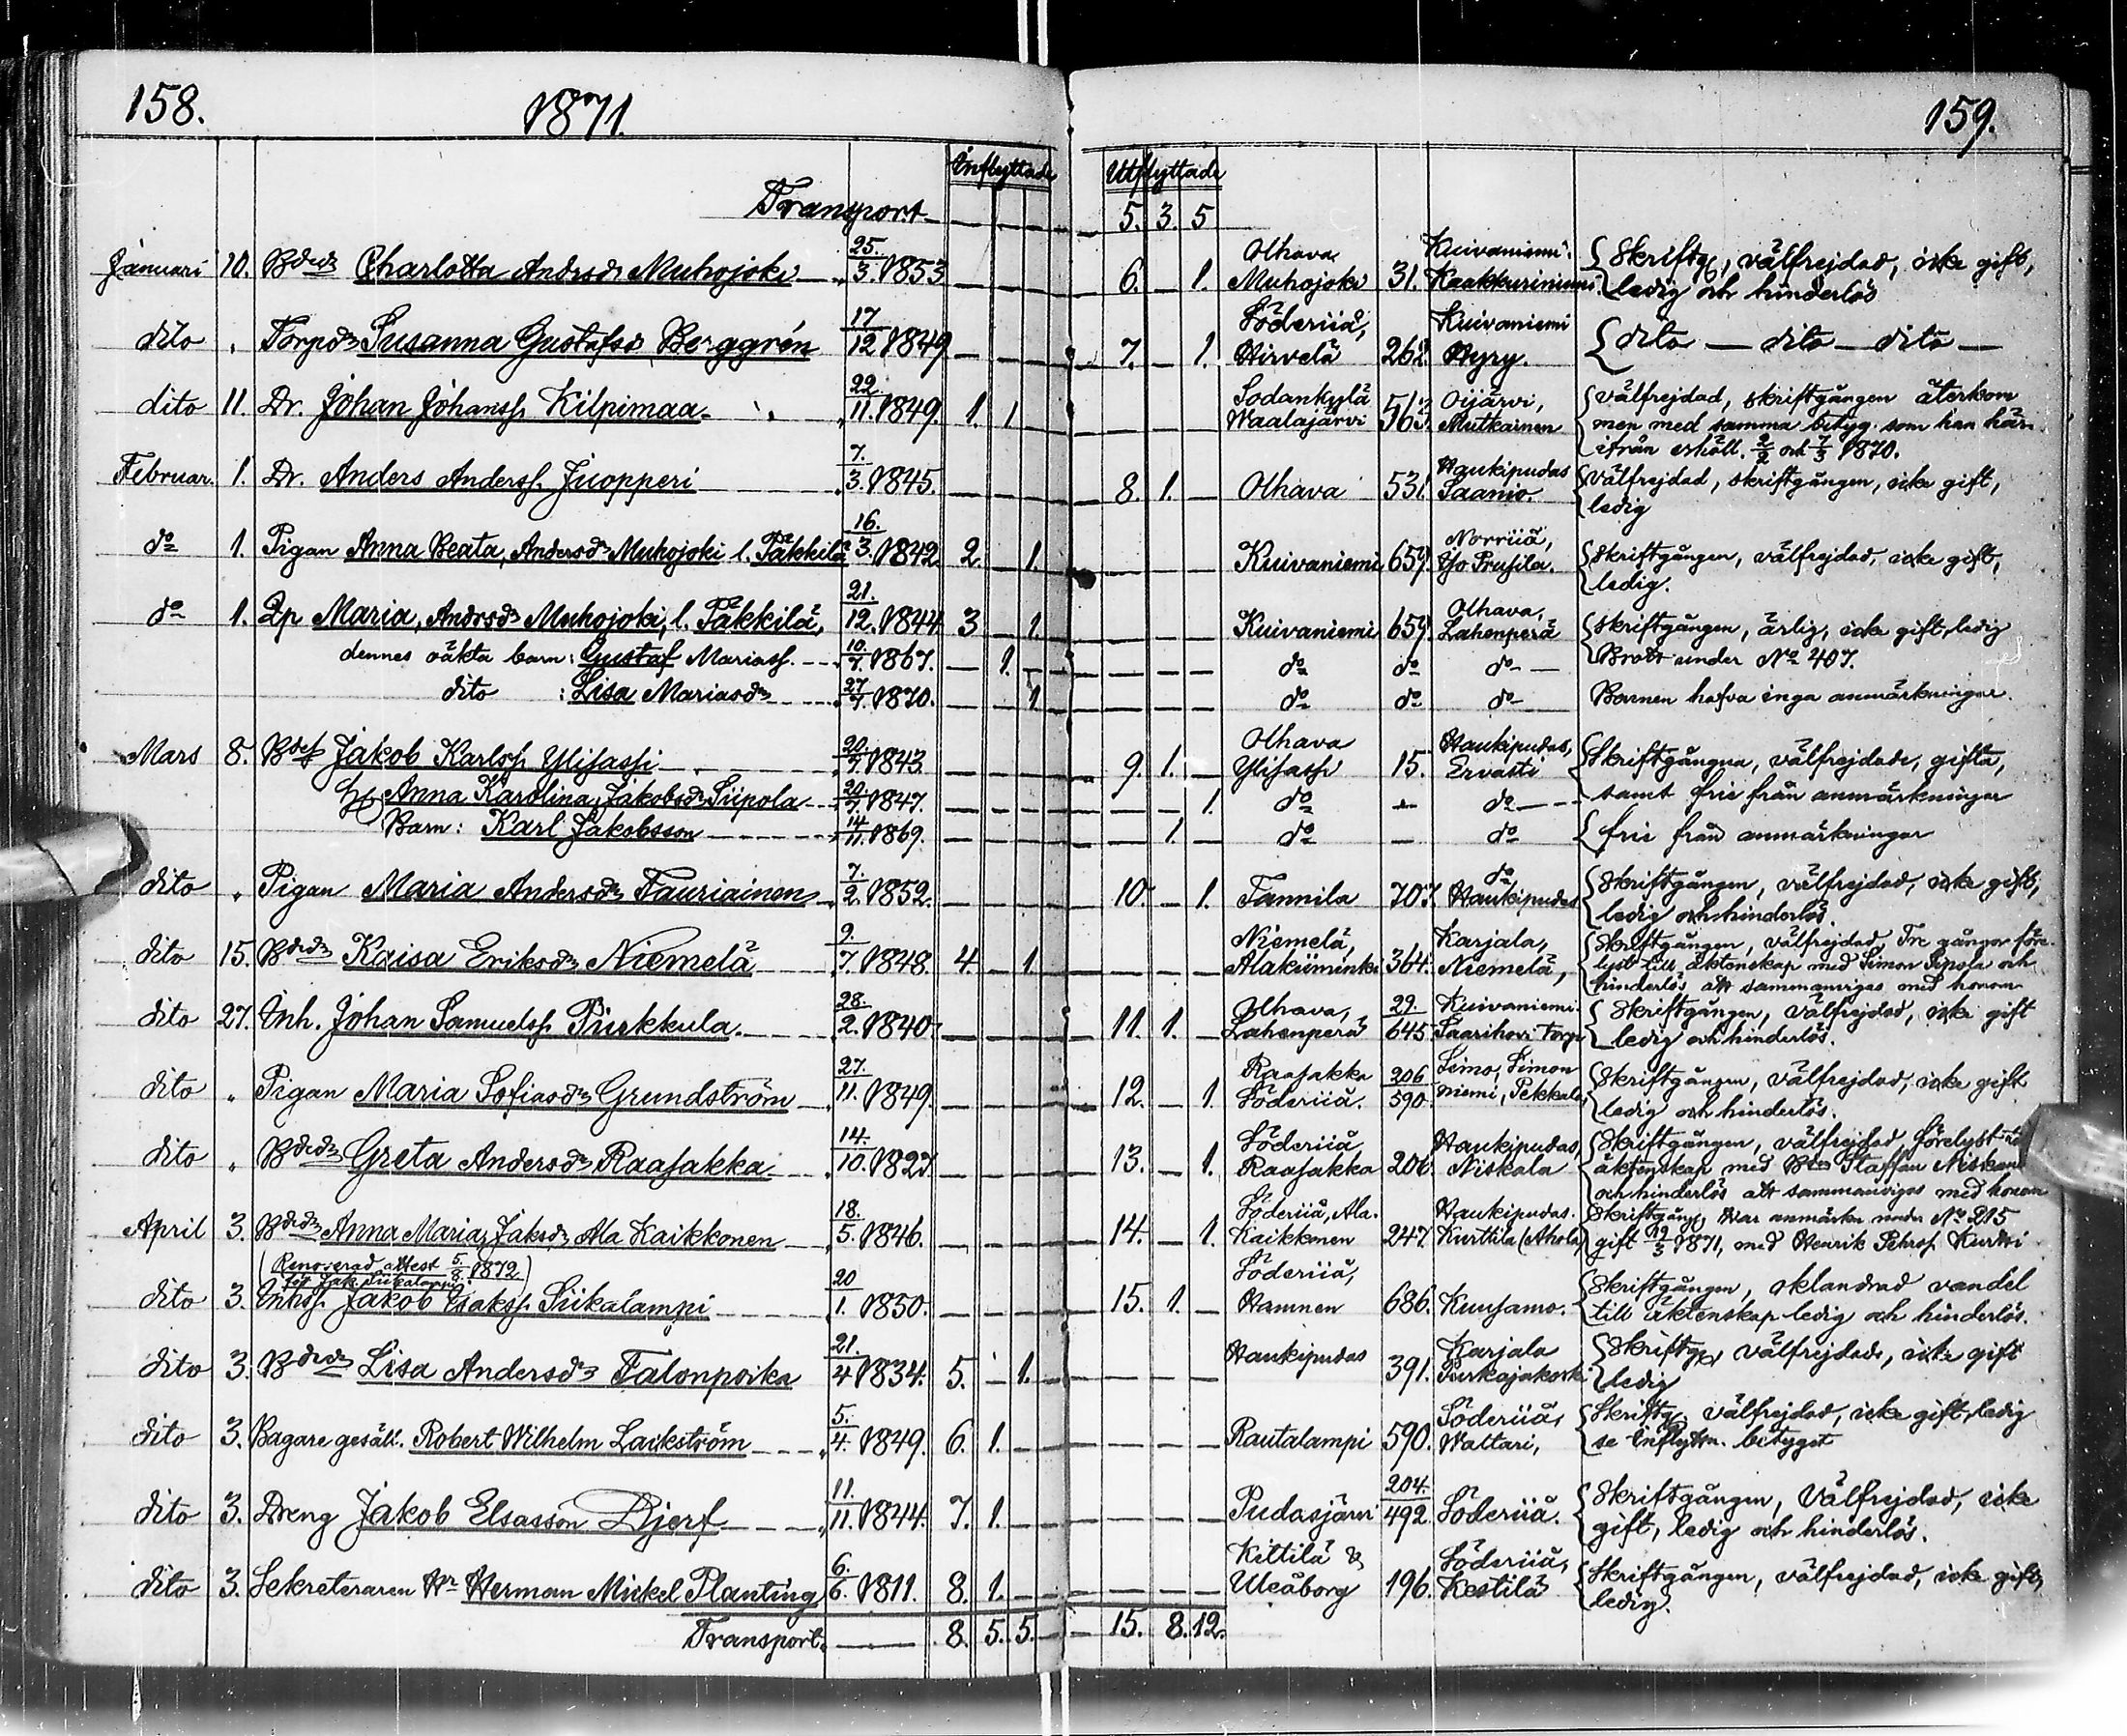 158. 1871. 159.
Inflyttade Utflyttade
Transport 5. 3. 5
Januari 10. Bdedr Charlotta Andrsdr Muhojoki 25./3. 1853 6. 1. Olhava Muhojoki 31. Kuivaniemi Kaakkuriniemi Skriftg, välfrejdad, icke gift,
ledig och hinderlös
dito " Torpdr Susanna Gustafsdr Berggrén 17/12 1849 7. 1. Söderiiå, Hirvelä 262 Kuivaniemi Hyry. dito — dito — dito —
dito 11. Dr. Johan Johanss. Kilpimaa 22/11. 1849. 1. 1 Sodankylä Waalajärvi 563. Oijärvi, Mutkainen välfrejdad, skriftgången återkom
men med samma betyg som han här
ifrån erhöll. och 1870.
Februar. 1. Dr. Anders Anderss. Juopperi 7./3. 1845. 8. 1. Olhava 531. Haukipudas Saanio. välfrejdad, skriftgången, icke gift,
ledig
do 1. Pigan Anna Beata, Andersdr Muhojoki l. Päkkilä 16./3. 1842 2. 1. Kuivaniemi 659. Norriiå, Skriftgången, välfrejdad, icke gift,
ledig.
do 1. Qp Maria, Andrsdr Muhojoki, l. Päkkilä, 21./12. 1844 3 1. Kuivaniemi 659. Olhava, Lahenperä Skriftgången, ärlig, icke gift, ledig
dennes oäkta barn: Gustaf Mariass. 10/7. 1867. 1. do do do Brott under No 407.
dito : Lisa Mariasdr 27/7. 1870. 1 do do do Barnen hafva inga anmärkningar.
Mars 8. Bdes Jakob Karlss. Ylisassi 20./7. 1843. 9. 1. Olhava Ylisassi 15. Haukipudas, Ervasti Skriftgångna, välfrejdade, gifta,
H. Anna Karolina, Jakobsdr Siipola 20/7. 1847. 1. do do samt frie från anmärkningar
Barn: Karl Jakobsson 14/11. 1869. 1. do — do frie från anmärkningar
dito " Pigan Maria Andersdr Tauriainen 7./2. 1852. 10. 1. Tannila 707. do Haukipudas Skriftgången, välfrejdad, icke gift,
ledig och hinderlös.
dito 15. Bdedr Kaisa Eriksdr Niemelä 9./7. 1848. 4. 1. Niemelä, Alakiiminki 364. Karjala, Niemelä, Skriftgången, välfrejdad Tre gångor före
lyst till äktenskap med Simon Sipola och
hinderlös att sammanvigas med honom
dito 27. Inh. Johan Samuelss. Pirkkula. 28./2. 1840. 11. 1. Olhava, Lahenperä 29/645 Kuivaniemi. Saarihovi torp Skriftgången, välfrejdad, icke gift
ledig och hinderlös.
dito " Pigan Maria Sofiasdr Grundström 27./11. 1849. 12. 1. Raasakka Söderiiå. 206/590. Simo, Simon niemi, Pekkala Skriftgången, välfrejdad, icke gift
ledig och hinderlös.
dito " Bdedr Greta Andersdr Raasakka 14./10. 1827. 13. 1. Söderiiå Raasakka 206. Haukipudas, Niskala Skriftgången, välfrejdad, förelyst
äktenskap med Staffan
och hinderlös att sammanvigas med honom
April 3. Bdedr Anna Maria, Jaksdr Ala Kaikkonen 18./5. 1846. 14. 1. Söderiiå, Ala. Kaikkonen 247. Haukipudas. Kurttila (Ahola) Skriftgång, Har anmärkn under No 215
gift 19/3 1871, med Henrik Pehrss. Kurtti
(Renoverad attest 5/8 1872
för Jak. Siikalampi)
dito 3. Inhss. Jakob Isakss. Siikalampi 20/1. 1850. 15. 1. Söderiiå, Hamnen 686. Kuusamo. Skriftgången, oklandrad vandel
till äktenskap ledig och hinderlös.
dito 3. Bdedr Lisa Andersdr Talonpoika 21./4 1834. 5. 1. Haukipudas 391. Karjala Purkajakoski Skriftg, välfrejdad, icke gift
ledig
dito 3. Bagare gesäll. Robert Wilhelm Lackström 5./4. 1849. 6. 1. Rautalampi 590. Söderiiå, Wattari, Skriftg. välfrejdad, icke gift, ledig
se Inflyttn. betyget
dito 3. Dreng Jakob Elsasson Djerf 11./11. 1844. 7. 1. Pudasjärvi 204./492. Söderiiå. Skriftgången, Välfrejdad, icke
gift, ledig och hinderlös.
dito 3. Sekreteraren Hr Herman Mickel Planting 6./6. 1811. 8. 1. Kittilä & Uleåborg 196. Söderiiå, Kestilä Skriftgången, välfrejdad, icke gift,
ledig.
Transport. 8. 5. 5. 15. 8. 12.